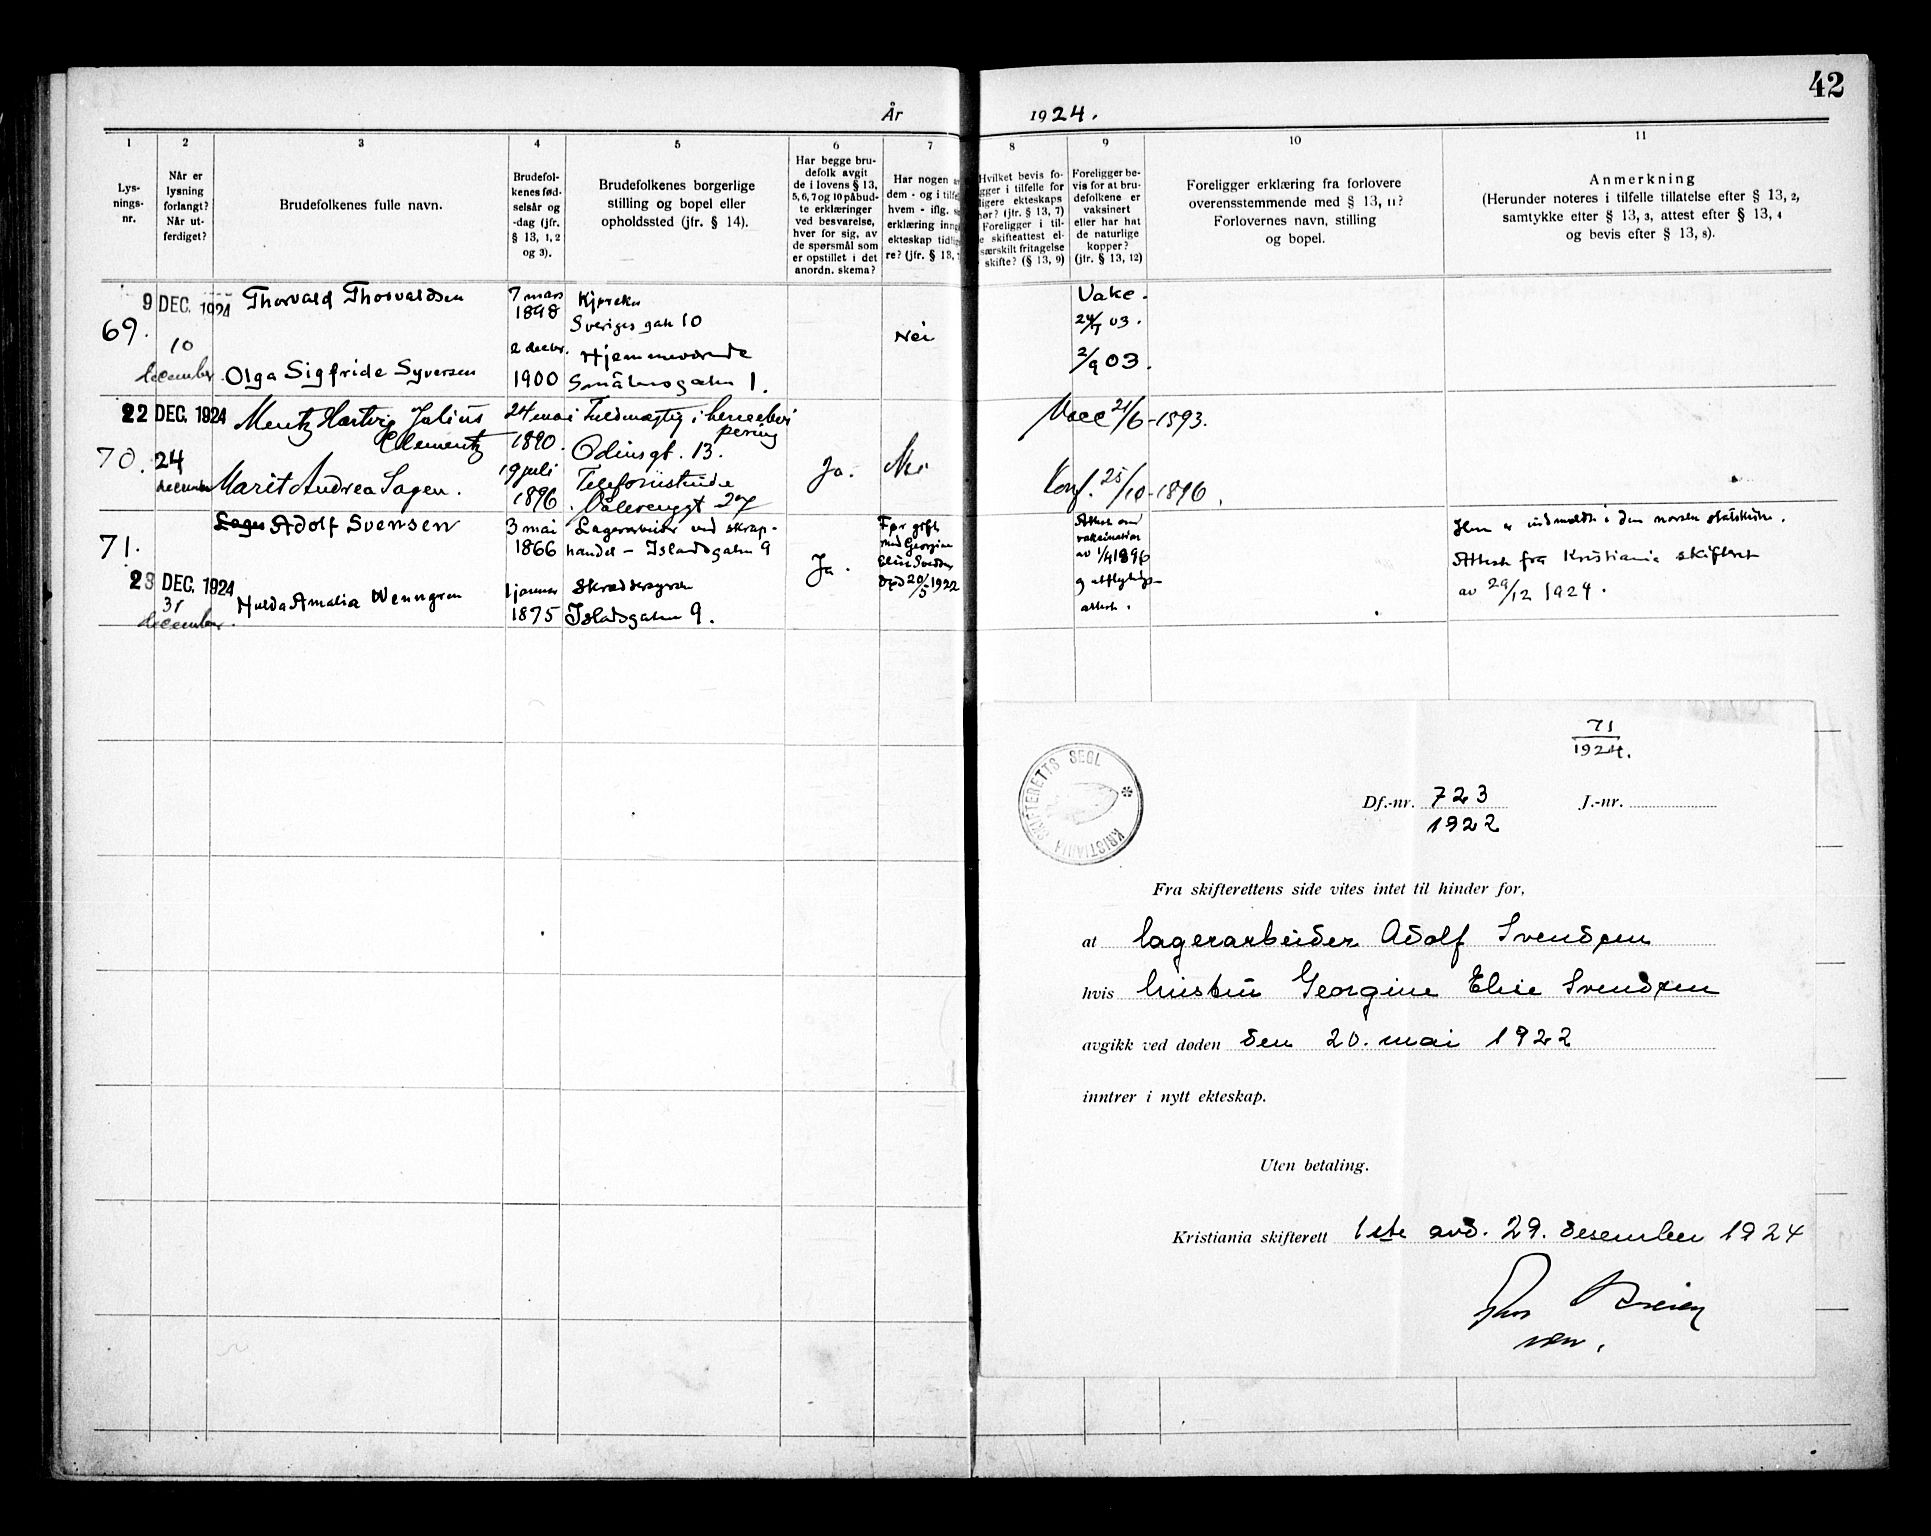 42
År 1924.
1 2 3 4 5 6 7 8 9 10 11
Lys-
nings-
nr.
Når er
lysning
forlangt?
Når ut-
ferdiget?
Brudefolkenes fulle navn.
Brudefol-
kenes fød-
selsår og
-dag (jfr.
§ 13, 1, 2
og 3).
Brudefolkenes borgerlige
stilling og bopel eller
opholdssted (jfr. § 14).
Har begge bru-
defolk avgit
de i lovens § 13,
5, 6, 7 og 10 påbud-
te erklæringer
ved besvarelse,
hver for sig, av
de spørsmål som
er opstillet i det
anordn. skema?
Har nogen a
dem - og i tilfe
hvem - iflg. s
erklæring inng
ekteskap tidlig
re? (jfr. § 13,
Hvilket bevis fo-
gger i tilfelle for
ligere ekteskaps
hør? (jfr. § 13, 7)
Foreligger i til-
e skifteattest el-
særskilt fritagelse
skifte? (§ 13, 9)
Foreligger be-
vis for at bru-
defolkene er
vaksinert
eller har hat
de naturlige
kopper?
(jfr. § 13, 12)
Foreligger erklæring fra forlovere
overensstemmende med § 13, 11?
Forlovernes navn, stilling
og bopel.
Anmerkning
(Herunder noteres i tilfelle tillatelse efter § 13, 2,
samtykke efter § 13, 3, attest efter § 13, 4
og bevis efter § 13, 8).
69.
9 DEC. 1924
10
december
Thorvald Thorvaldsen
7 mars
1898
Kjøreku
Sveriges gate 10
Nei
Vakc.
03.
Olga Sigfride Syversen
2 decbr.
1900
Hjemmeværende
Smålensgaten 1.
2/9 03.
70.
22 DEC. 1924
24
december
Mentz Hartvig Julius
Clementz
24 mai
1890.
Fuldmægtig i
Odinsgt. 13.
Ja.
Nei
Vacc 21/6-1893.
Marit Andrea Sagen.
19 juli
1896
Telefonistinde
Vålerenggt 27
Konf. 25/10-1896.
71.
23 DEC. 1924
31
december.
Adolf Svensen
3 mai
1866
Lagerarbeider ved skrap-
handel - Islandsgaten 9
Ja.
Før gift
med Georgine
Elise Svendsen
død 20/5 1922
Attest om
vaksination
av 1/4 1896
attest.
Han er indmeldt i den norske statskirke.
Attest fra Kristiania skifterett
av 29/12 1924.
Hulda Amalia Wenngren
1 januar
1875
Skreddersyerske
Islandsgaten 9.
71
1924.
KRISTIANIA SKIFTERETTS SEGL
Df.-nr. 723 J.-nr.
1922
Fra skifterettens side vites intet til hinder for,
at lagerarbeider Adolf Svendsen
hvis hustru Georgine Elise Svendsen
avgikk ved døden den 20. mai 1922
inntrer i nytt ekteskap.
Uten betaling.
Kristiania skifterett 1ste avd. 29. desember 1924